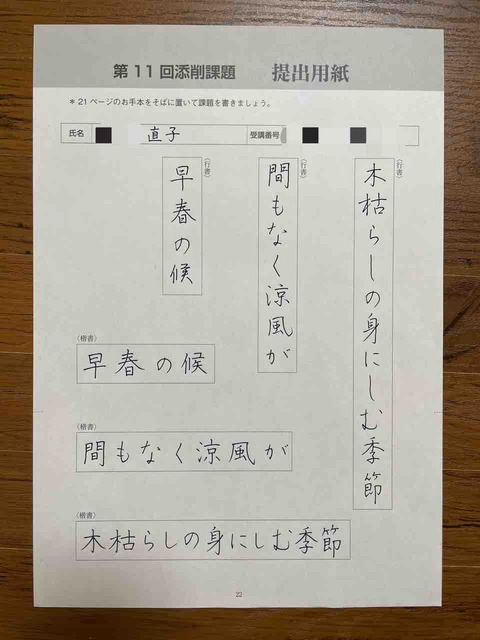 第11回添削課題 提出用紙
＊21ページのお手本をそばに置いて課題を書きましょう。
氏名 直子 受講番号
（行書）
木枯らしの身にしむ季節
（行書）
間もなく涼風が
（行書）
早春の候
（楷書）
早春の候
（楷書）
間もなく涼風が
（楷書）
木枯らしの身にしむ季節
22